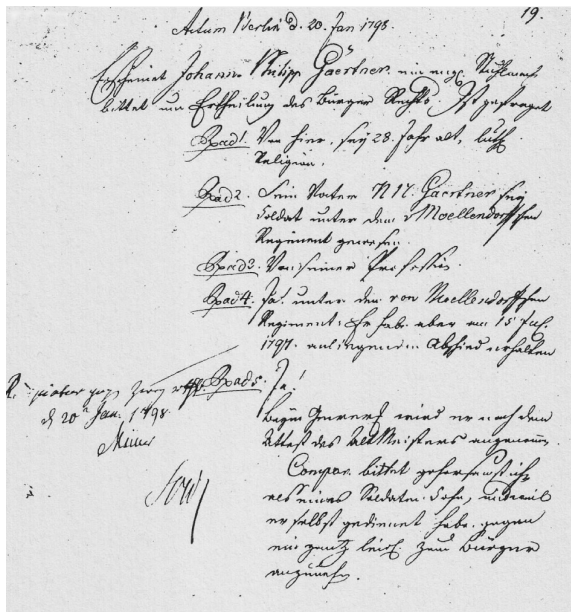 19.
Actum Berlin d. 20. Jan 1798.
Erscheinet Johann Philipp Gaertner ein
bittet um Ertheilung des Bürger Rechts. Ist gefraget
Resp. ad 1. Von hier, sey 28. Jahr alt, luth.
Religion.
ad 2. Sein Vater Gaertner sey
Soldat unter dem v Moellendorffschen
Regiment gewesen.
ad 3. Von seiner Profession.
ad 4. Ja! unter dem von Moellendorffschen
Regiment. Er habe aber am 15
1797. Abschied erhalten
ad 5. Ja!
d 20 Jan. 1798.
Beym Gewerk wird er nach dem
Attest des Alt Meisters angenommen
Compar. bittet gehorsamst ihn
als eines Soldaten Sohn, und weil
er selbst gedienet habe gegen
ein zum Bürger
anzunehmen.